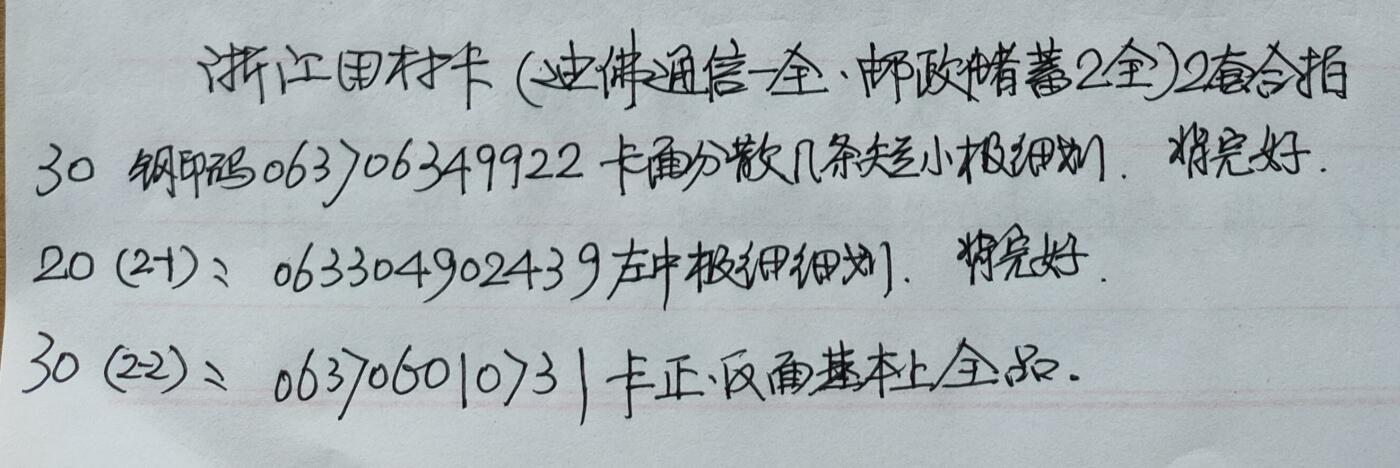 浙江田村卡(迪佛通信一全、邮政储蓄2全)2套合拍
30 钢印码063706349922卡面分散几条短小极细划.将完好.
20(2-1)、063304902439左中极细细划.将完好.
30(2-2)、063706010731卡正、反面基本上全品.